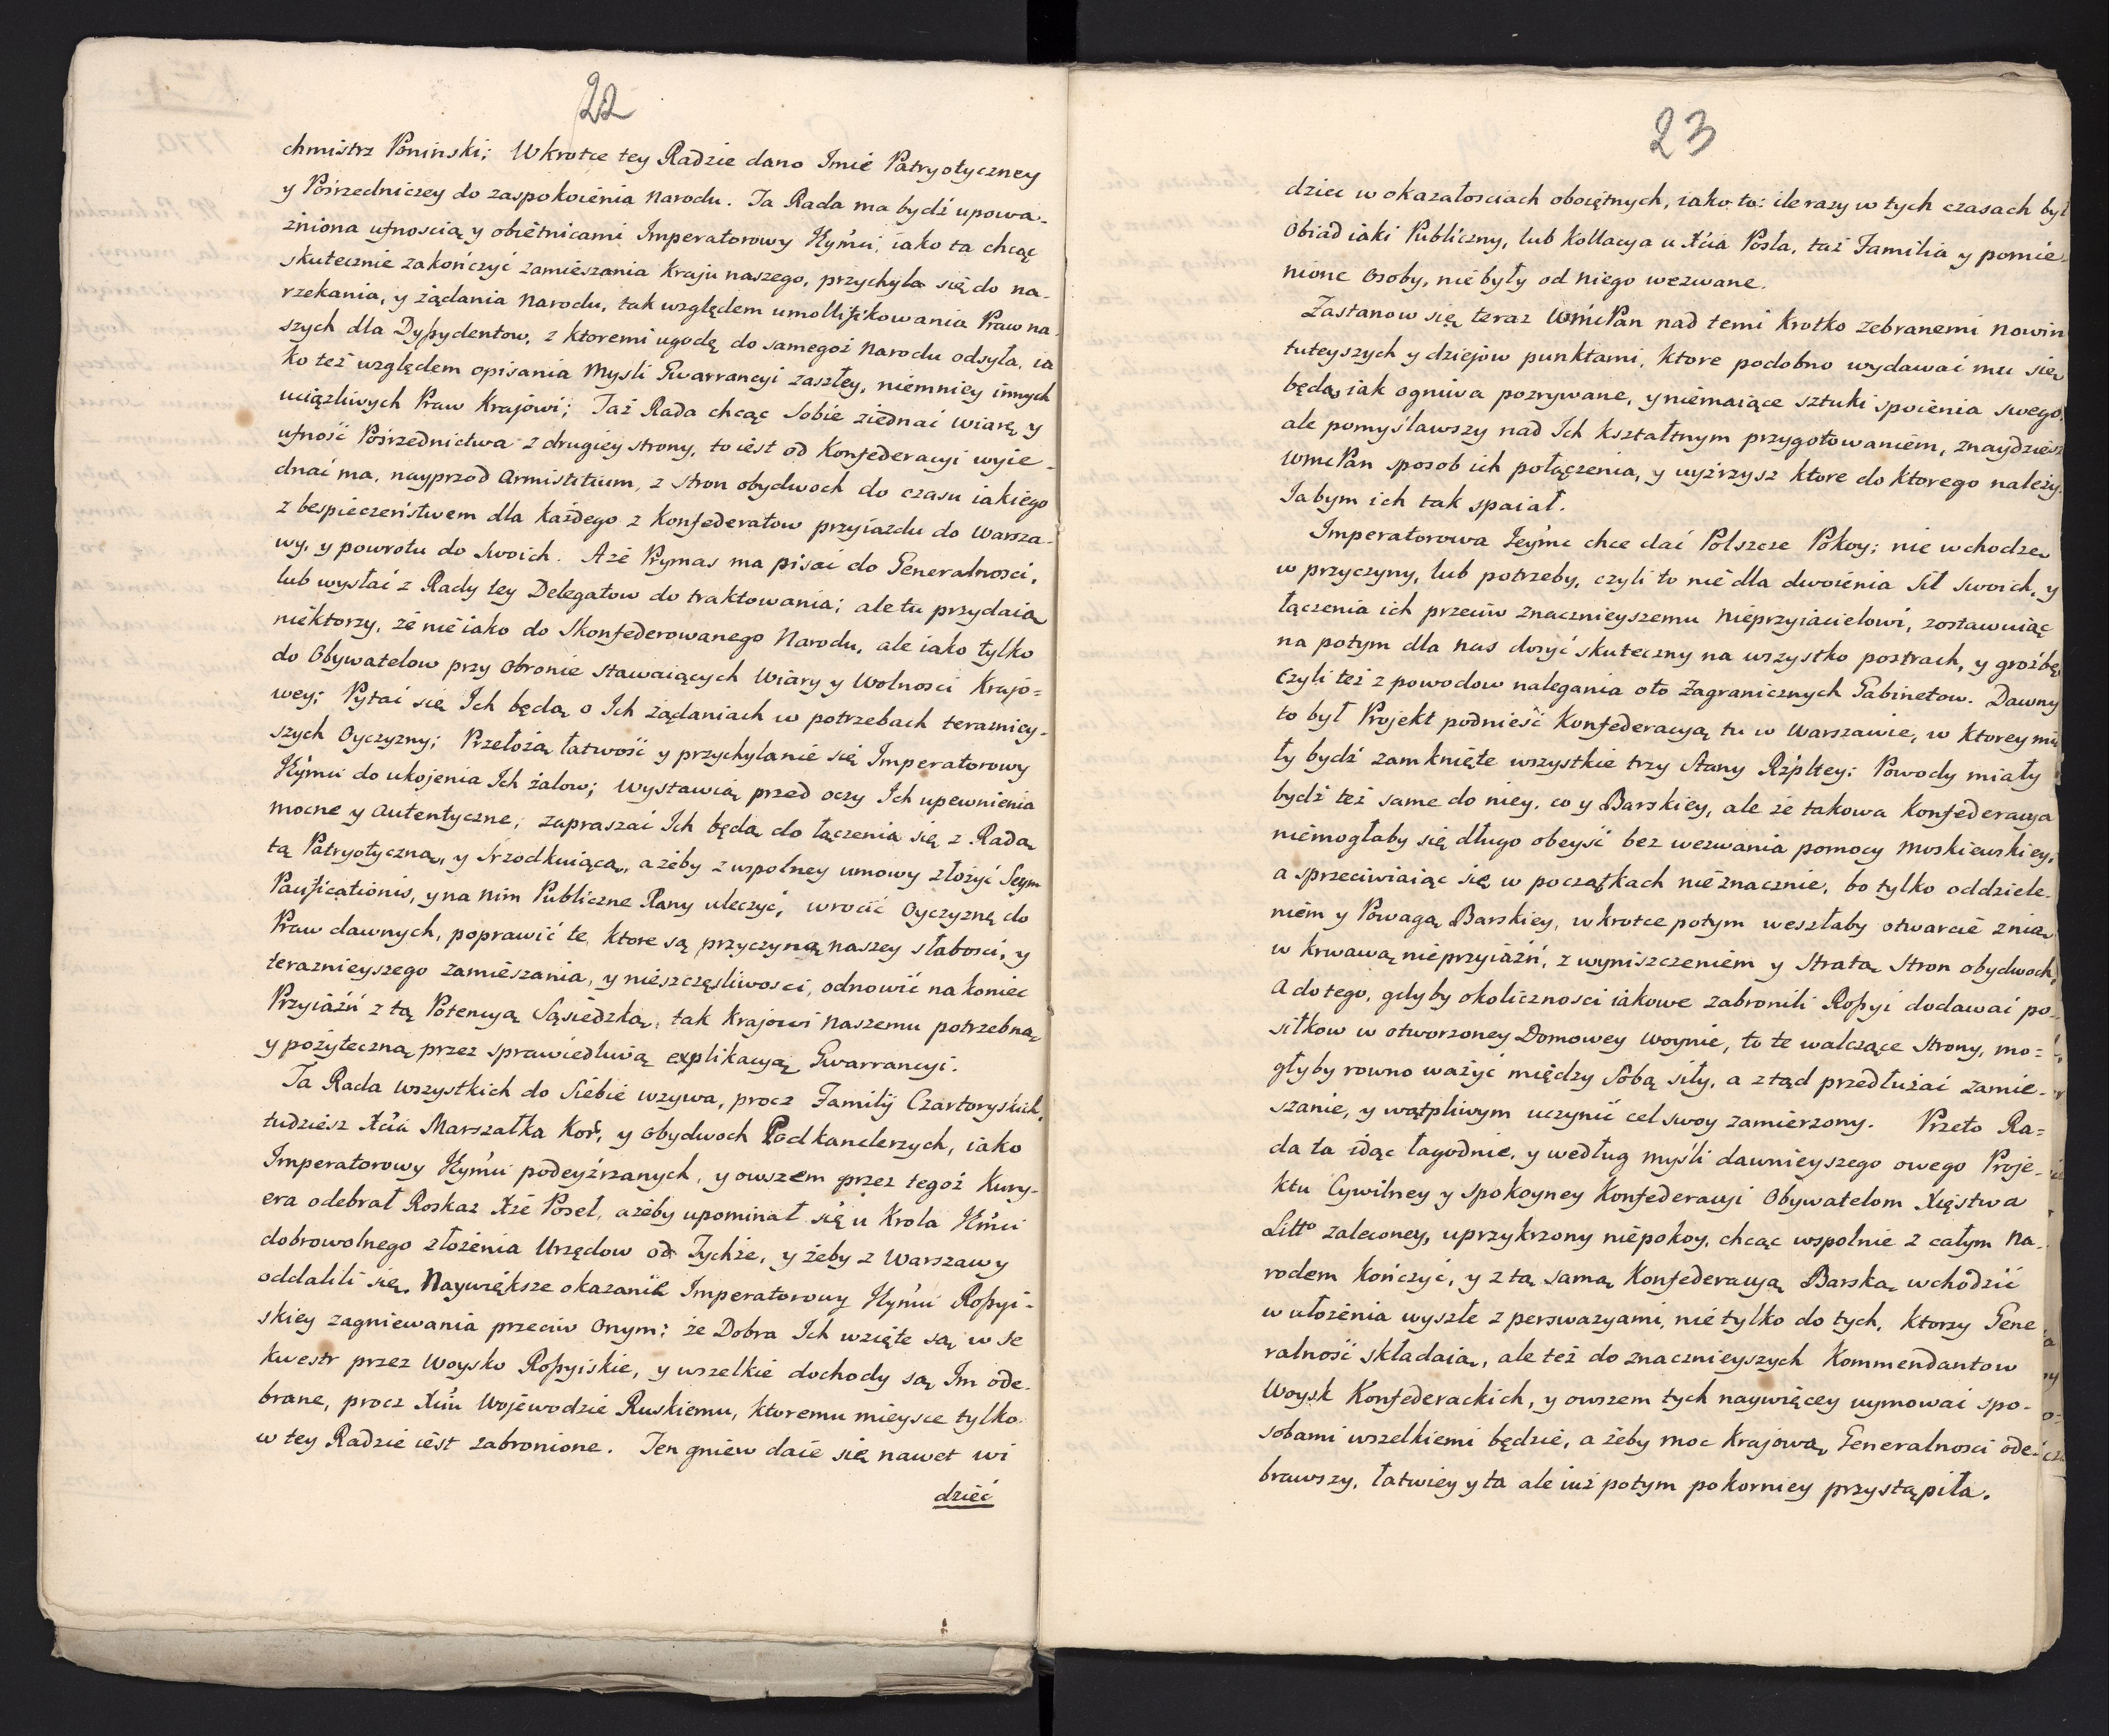 22
chmistrz Poninski; Wkrotce tey Radzie dano Imie Patryotyczney
y Pośrzedniczey do zaspokoienia Narodu. Ta Rada ma bydź upowa-
żniona ufnoscią y obietnicami Imperatorowy Jeymci, iako ta chcąc
skutecznie zakończyć zamieszania Kraju naszego, przychyla się do na-
rzekania, y żądania Narodu, tak względem umollifikowania Praw na-
szych dla Dyssydentow, z ktoremi ugodę do samegoż Narodu odsyła, ia
ko też względem opisania Mysli Gwarrancyi zaszłey, niemniey innych
uciążliwych Praw Krajowi; Taż Rada chcąc Sobie ziednać Wiarę y
ufność Pośrzednictwa z drugiey strony, to iest od Konfederacyi wyie-
dnać ma, nayprzod Armistitium, z stron obydwoch do czasu iakiego
z bespieczeństwem dla każdego z Konfederatow przyiazdu do Warsza-
wy, y powrotu do Swoich. A że Prymas ma pisać do Generalnosci,
lub wysłać z Rady tey Delegatow do traktowania; ale tu przydaią
niektorzy, że nie iako do Skonfederowanego Narodu, ale iako tylko
do Obywatelow przy Obronie stawaiących Wiary y Wolnosci Krajo=
wey; Pytać się Ich będą o Ich żądaniach w potrzebach terazniey-
szych Oyczyzny; Przełożą łatwość y przychylanie się Imperatorowy
Jeymci do ukojenia Ich żalow; wystawią przed oczy Ich upewnienia
mocne y autentyczne; zapraszać Ich będą do łączenia się z Radą
tą Patryotyczną, y Srzodkuiącą, ażeby z wspolney umowy złożyć Seym
Pacificationis, y na nim Publiczne Rany uleczyć, wrocić Oyczyznę do
Praw dawnych, poprawić te, ktore są przyczyną naszey słabosci, y
teraznieyszego zamieszania, y nieszczęsliwosci, odnowić na koniec
Przyiaźń z tą Potencyą Sąsiedzką, tak Krajowi Naszemu potrzebną
y pożyteczną przez sprawiedliwą explikacyą Gwarrancyi.
Ta Rada wszystkich do Siebie wzywa, procz Familij Czartoryskich,
tudziesz Xcia Marszałka Kor, y obydwoch Podkanclerzych, iako
Imperatorowy Jeymci podeyźrzanych, y owszem przez tegoż Kury-
era odebrał Roskaz Xże Poseł, ażeby upominał się u Krola Jmci
dobrowolnego złożenia Urzędow od Tychże, y żeby z Warszawy
oddalili się. Naywiększe okazanie Imperatorowy Jeymci Rossyi-
skiey zagniewania przeciw Onym; że Dobra Ich wzięte są w Se
kwestr przez Woysko Rossyiskie, y wszelkie dochody są Im ode-
brane, procz Xciu Wojewodzie Ruskiemu, ktoremu mieysce tylko
w tey Radzie iest zabronione. Ten gniew daie się nawet wi
dzieć
23
dziec w okazałosciach oboiętnych, iako to: ile razy w tych czasach był
Obiad iaki Publiczny, lub Kollacya u Xcia Posła, taż Familia y pomie-
nione Osoby, nie były od niego wezwane.
Zastanow się teraz WmcPan nad temi krotko zebranemi nowin
tuteyszych y dziejow punktami, ktore podobno wydawać mu się
będą, iak ogniwa pozrywane, y niemaiące sztuki spoienia swego,
ale pomyślawszy nad Ich kształtnym przygotowaniem, znaydziesz
WmcPan sposob ich połączenia, y uyźrzysz ktore do ktorego należy.
Ja bym ich tak spaiał.
Imperatorowa Jeymc chce dać Polszcze Pokoy; nie wchodzę
w przyczyny, lub potrzeby, czyli to nie dla dwoienia Sił Swoich, y
łączenia ich przeciw znacznieyszemu Nieprzyiacielowi, zostawuiąc
na potym dla nas dosyć skuteczny na wszystko postrach, y groźbę
Czyli też z powodow nalegania oto Zagranicznych Gabinetow. Dawny
to był Projekt podnieść Konfederacyą tu w Warszawie, w ktorey mia
ły bydź zamknięte wszystkie trzy Stany Rzpltey; Powody miały
bydź też same do niey, co y Barskiey, ale że takowa Konfederacya
niemogłaby się długo obeyść bez wezwania pomocy Moskiewskiey,
a sprzeciwiaiąc się w początkach nieznacznie, bo tylko oddziele-
niem y Powagą Barskiey, wkrotce potym weszłaby otwarcie z nią
w krwawą nieprzyiaźń, z wyniszczeniem y Stratą Stron obydwoch,
A do tego, gdyby okolicznosci iakowe zabronili Rossyi dodawać po-
siłkow w otworzoney Domowey Woynie, to te walczące Strony, mo=
głyby rowno ważyć między Sobą siły, a ztąd przedłużać zamie-
szanie, y wątpliwym uczynić cel swoy zamierzony. Przeto Ra=
da ta idąc łagodnie, y według myśli dawnieyszego owego Proje-
ktu Cywilney y spokoyney Konfederacyi Obywatelom Xięstwa
Litto zaleconey, uprzykrzony niepokoy, chcąc wspolnie z całym Na-
rodem kończyć, y z tą samą Konfederacyą Barską wchodzić
w ułożenia wyszle z perswazyami, nie tylko do tych, ktorzy Gene
ralność składaią, ale też do znacznieyszych Kommendantow
Woysk Konfederackich, y owszem tych naywięcey uymować spo-
sobami wszelkiemi będzie, a żeby moc Krajową Generalnosci ode-
brawszy, łatwiey y ta ale iuż potym pokorniey przystąpiła.